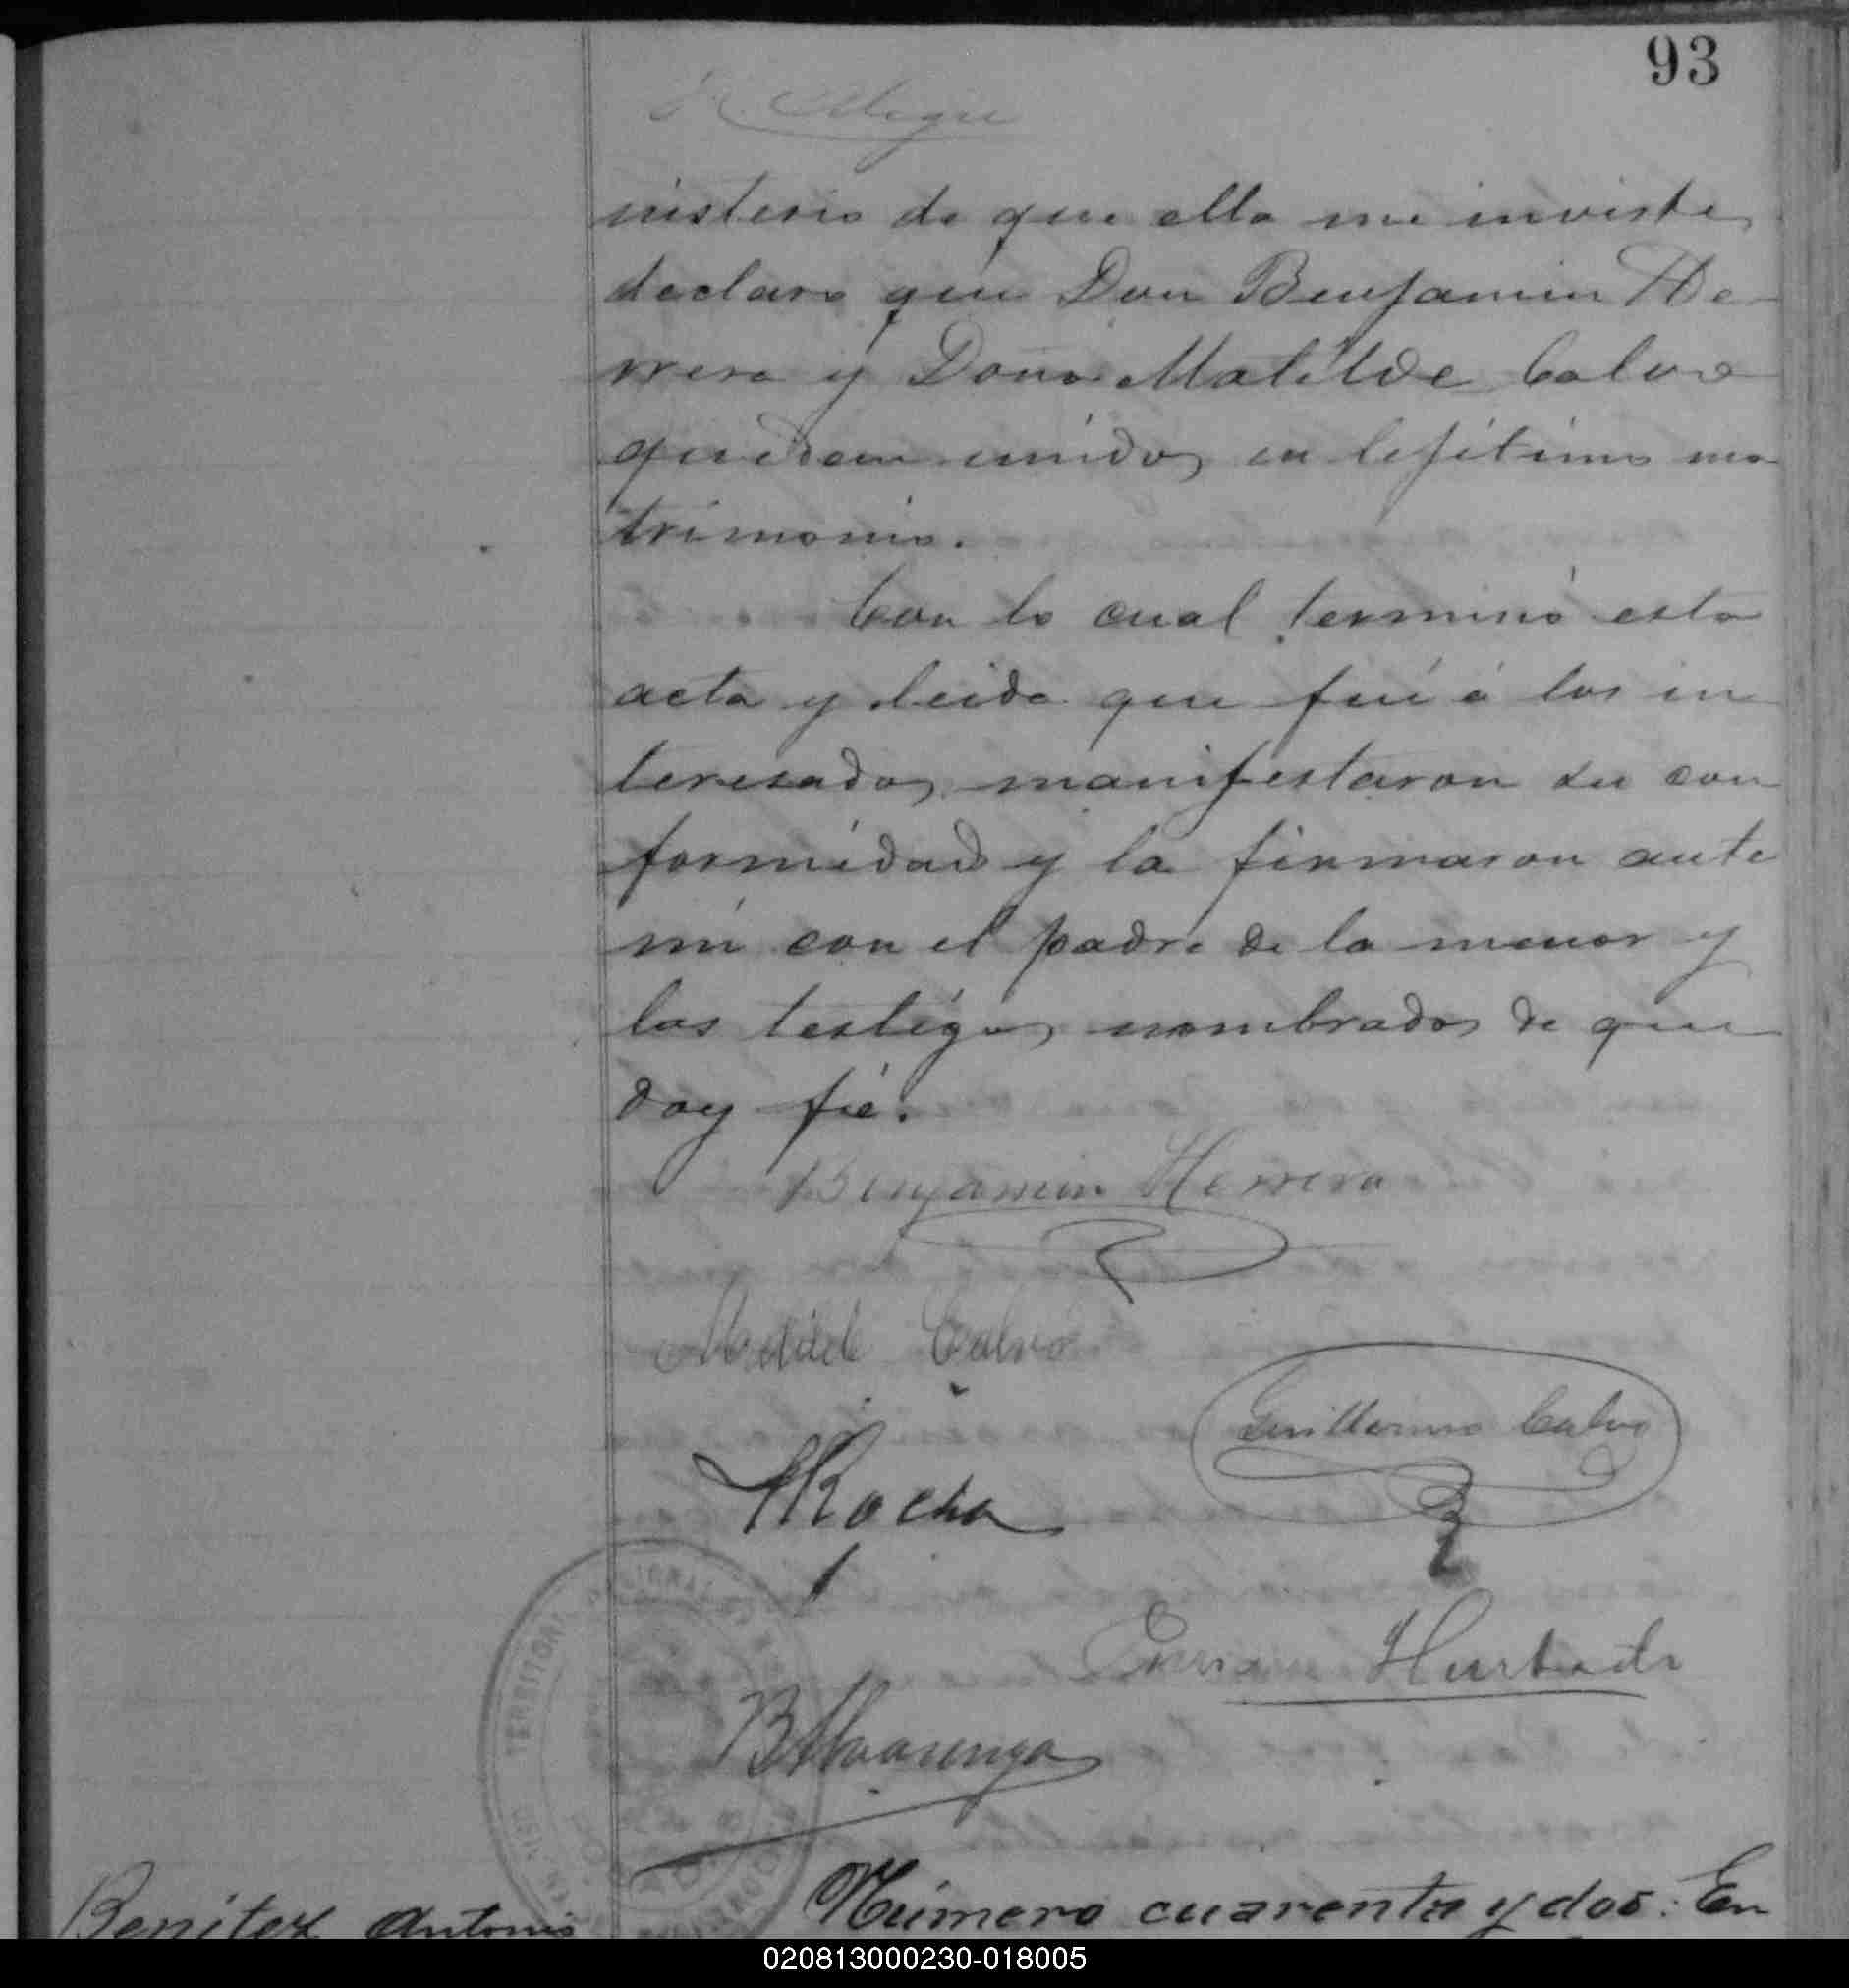 93
nisterio de que ella me inviste
declaro que Don Benjamin He-
rrera y Doña Matilde Calvo
quedan unidos en lejítimo ma
trimonio.
Con lo cual terminó esta
acta y leida que fué á los in
teresados, manifestaron su con
formidad y la firmaron ante
mi con el padre de la menor y
los testigos nombrados de que
doy fé.
Benjamin Herrera
Matilde Calvo
Guillermo Calvo
Rocha
Hurtado
TERRITORI NACIONAL
Benitez Antonio
Número cuarenta y dos: En
020813000230-018005